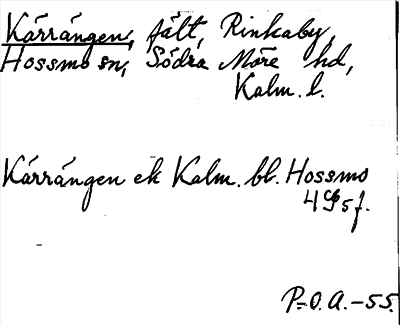 Kärrängen, fält, Rinkaby,
Hossmo sn, Södra Möre hd,
Kalm. l.
Kärrängen ek Kalm. bl. Hossmo
4G5f.
P-O.A.-55.